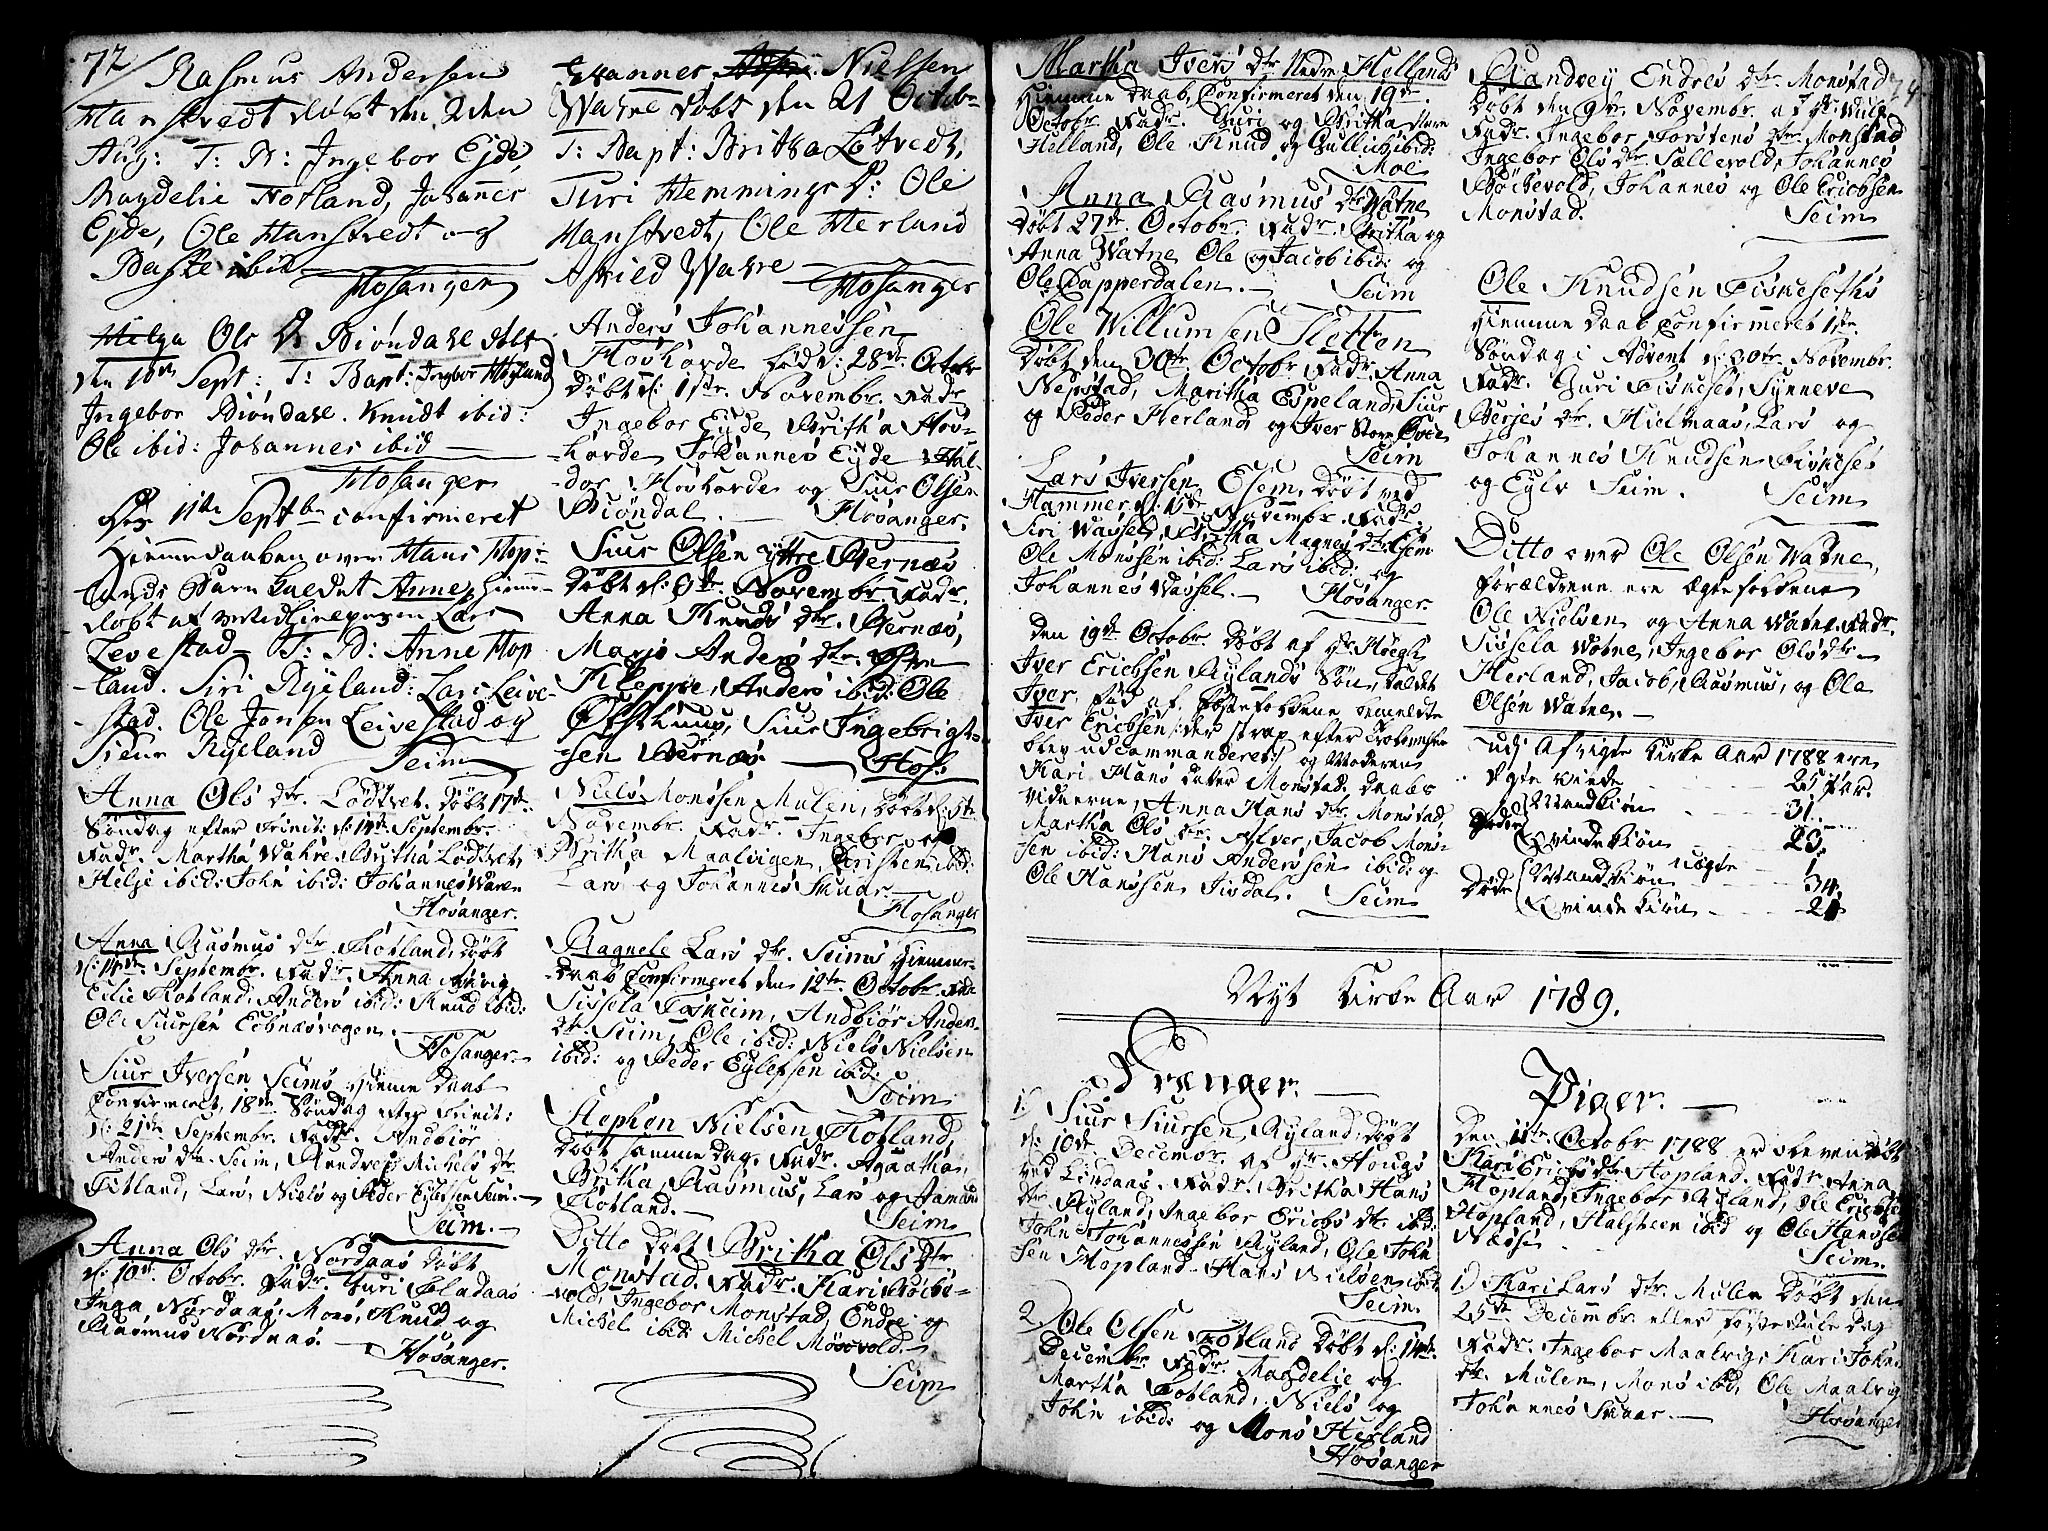 72
Rasmus Andersen
Hanstvedt døbt den 2den
Aug: T: B: Ingebor Ejde,
Magdelie Hotland, Johannes
Ejde, Ole Hanstvedt og
Baste ibid
Hosanger
Helga Ols D. Biøndahl døbt
den 10de Sept: T: Bapt: Ingebor Høyland
Ingebor Biøndahl. Knudt ibid:
Ole ibid: Johannes ibid
Hosanger
11te Septbr confirmeret
Hiemmedaaben over Hans Hop-
lands Barn kaldet Anne, hiemme-
døbt af Lars
Levestad T: B: Anne Hop
-land. Siri Ryeland: Lars Leive-
-stad. Ole Jonsen Leivestad og
Siur Ryeland Seim
Anna Ols dtr. Lødtvet. døbt 17de
Søndag efter Trinit: d: 14de Septembr.
Fadr. Martha Wahre. Britha Lødtvet
Helje ibid: John ibid: Johannes Ware
Hosanger.
Anna Rasmus dtr Hotland, døbt
d: 14de Septembr. Fadr. Anna
Eilie Hotland, Anders ibid: Knud ibid:
Ole Siursen Echnæsvogen.
Hosanger.
Siur Iversen Seims Hiemme Daab
Confirmeret, 18de Søndag efter Trinit:
d: 21de Septembr. Fadr. Andbiør
Anders dtr Seim, Randvei Michels dtr
Titland, Lars, Niels og Peder Eylefsen Seim.
Seim.
Anna Ols dtr. Nordaas døbt
d: 10de Octobr. Fadr. Guri Fladaas
Inga Nordaas, Mons, Knud og
Rasmus Nordaas.
Hosanger.
Johannes Nielsen
Wahre døbt den 21 Octob-
T: Bapt: Britha Løtvedt,
Turi Hemmings D: Ole
Hanstvedt, Ole Herland
Asfried Wahre
Hosanger
Anders Johannessen
Houkorde fød d: 28de. Octobr
Døbt d: 1ste. Novembr. Fadr
Ingebor Eyde, Britha Hou-
korde Johannes Eyde Hal-
-dor Houkorde og Siur Olsen
Biøndal. Hosanger.
Siur Olsen yttre Bernæs
Døbt d: Novembr. Fadr.
Anna Knuds dtr. Bernæs,
Maris Anders dtr.
Kleppe, Anders ibid: Ole
Siur Ingebrigt-
sen Bernæs. Hos:
Niels Monssen Mulen, døbt d: 5te
Novembr. Fadr. Ingebor og
Britha Maalvigen, Christen ibid:
Lars og Johannes Skaar.
Hosanger
Ragnele Lars dtr. Seims Hiemme-
-Daab Confirmeret den 12te Octobr. Fadr
Sissela Toskeim, Andbiør Anders-
dtr. Seim, Ole ibid: Niels Nielsen
ibid: og Peder Eylefsen ibid:
Seim
Stephen Nielsen Hotland,
døbt samme dag. Fadr. Agaatha,
Britha, Rasmus, Lars og Aamund
Hotland.
Seim
Ditto døbt Britha Ols dtr.
Monstad. Fadr. Kari Bøche-
-vold, Ingebor Monstad, Endre og
Michel ibid: Michel Mosevold.
Seim
Martha Ivers dtr Nedre Hellands
Hiemme daab, Confirmeret den 19de.
Octobr. Fadr. Guri og Britha store
Helland, Ole Knud og Gullich ibid:
Moe
Anna Rasmus dtr Watne
døbt 27de. Octobr. Fadr. Britha og
Anna Watne Ole og Jacob ibid: og
Ole Dapperdalen. Seim
Ole Willumsen Sletten
døbt den 30te. Octobr Fadr. Anna
Nepstad, Maritha Espeland, Siur
og Peder Herland og Iver Store
Seim
Lars Iversen Elsem, døbt ved
Hammer d: Novembr. Fadr.
Siri Wassel, Britha Magnes dtr. Elsem
Ole Monssen ibid: Lars ibid: og
Johannes Vassel. Hosanger.
Den 19de Octobr døbt af Hr. Høegh
Iver Erichsen Rylands Søn, kaldet
Iver, fød af Egtefolkene bemeldte
Iver Erichsen /: der strax efter
blev udcommanderet:/ og Moderen
Kari Hans dater Monstad. Daabs
vidnerne, Anna Hans dtr. Monstad
Martha Ols dtr. Alver, Jacob Mons-
sen ibid: Hans Anderssen ibid: og
Ole Hanssen Tisdal. Seim
74
Randvey Endres dtr. Monstad
døbt den 9de. Novembr. af Hr. Wulf
Fadr. Ingebor Torstens dtr. Monstad
Ingebor Ols dtr. Sællevold, Johannes
Bøchevold, Johannes og Ole Erichsen
Monstad. Seim
Ole Knudsen Fiskeseths
Hiemme daab Confirmeret 1ste.
Søndag i Advent d: 30te. Novembr.
Fadr. Guri Fiskeset, Synneve
Berjes dtr. Hielmaas, Lars og
Johannes Knudsen Fiskeset
og Eylv Seim. Seim
Ditto over Ole Olsen Watne,
forældrene ere Egtefolkene
Ole Nielsen og Anna Watne. Fadr.
Sissela Watne, Ingebor Ols dtr
Herland, Jacob, Rasmus, og Ole
Olsen Watne.
Udj Afvigte Kirke Aar 1788 ere
Egte viede 25 Par.
Fødde Mandkiøn 31.
Qvindekiøn 23.
uægte 1
Døde Mandkiøn 34.
Qvindekiøn 21
Nyt Kirke Aar 1789.
Drenger.
1) Siur Siursen Ryland, døbt
d. 10de. Decembr. af Hr. Hougs
ved Lindaas. Fadr. Britha Hans
dtr Ryland, Ingebor Erichs dtr. ibid:
John Johannessen Ryland, Ole John
sen Hopland Hans Nielsen ibid:
Seim.
2. Ole Olsen Hotland døbt d: 14de.
Decembr Fadr. Magdelie og
Martha Hotland, Niels og
John ibid: og Mons Herland
Hosanger
Piger.
Den 11te. Octobr 1788
Kari Erichs dtr Hopland. Fadr. Anna
Hopland, Ingebor Ryland, Ole Erichsen
Hopland, Halsteen ibid og Ole Hanssen
Næsse Seim.
1) Kari Lars dtr. Mulen døbt den
25de. Decembr eller første Jule dag
Fadr. Ingebor Maalvig, Kari Johns
dtr. Mulen, Mons ibid, Ole Maalvig
Johannes Skaar.
Hosanger